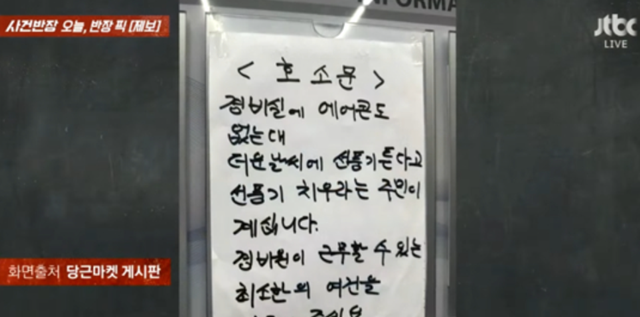 사건반장 오늘, 반장 픽 [제보]
INFORMA
jtbc
LIVE
< 호 소 문 >
경비실에 에어콘도
없는대
더운날씨에 선풍기튼다고
선풍기 치우라는 주민이
계십니다.
경비원이 근무할 수 있는
최소한의 여건을
화면출처 당근마켓 게시판